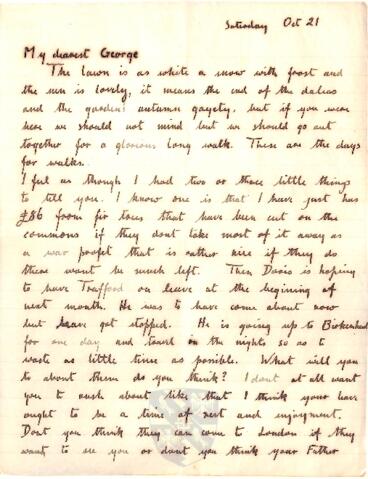 Saturday Oct 21
My dearest George
The lawn is as white a snow with frost and
the sun is lovely, it means the end of the dalias
and the gardens autumn gayety, but if you were
here we should not mind but we should go out
together for a glorious long walk. These are the days
for walks.
I feel as though I had two or three little things
to tell you. I know one is that I have just has
£86 from fir trees that have been cut on the
commons if they dont take most of it away as
a war profet that is rather nice if they do
there wont be much left. Then Davis is hoping
to have Trafford on leave at the begining of
next month. He was to have come about now
but leave got stopped. He is going up to Birkenhead
for one day and travel in the nights so as to
waste as little time as possible. What will you
to about them do you think? I dont at all want
you to rush about like that I think your leave
ought to be a time of rest and enjoyment.
Dont you think they can come to London if they
want to see you or dont you think your Father